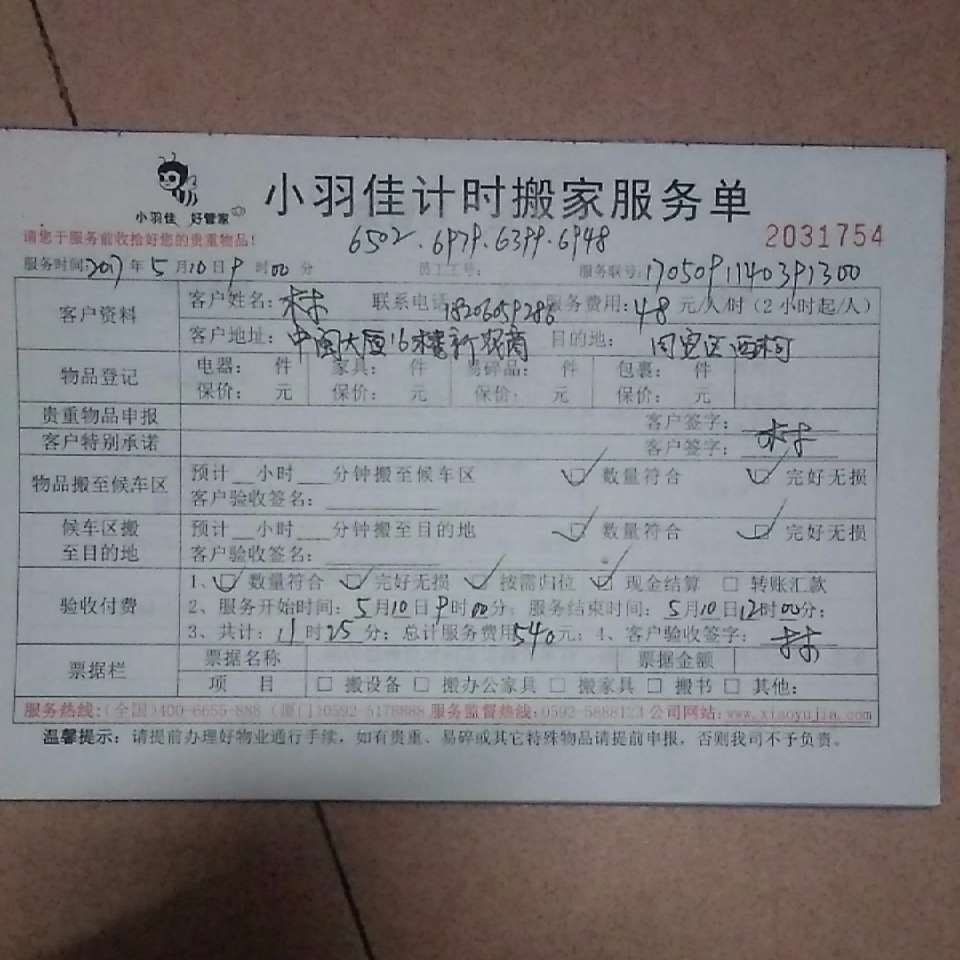 小羽佳 好管家
小羽佳计时搬家服务单
请您于服务前收拾好您的贵重物品!
6502.6979.6399.6948
2031754
服务时间:2017年5月10日9时00分 员工工号: 服务联号:1705091140391300
客户资料
客户姓名:林 联系电话:18206059286 服务费用:48元/人/时(2小时起/人)
客户地址:中闽大厦16楼 目的地:同安区西柯
物品登记
电器: 件 家具: 件 易碎品: 件 包裹: 件
保价: 元 保价: 元 保价: 元 保价: 元
贵重物品申报 客户签字:
客户特别承诺 客户签字: 林
物品搬至候车区
预计__小时___分钟搬至候车区 ☑ 数量符合 ☑ 完好无损
客户验收签名:
候车区搬至目的地
预计__小时___分钟搬至目的地 ☑ 数量符合 ☑ 完好无损
客户验收签名:
验收付费
1、☑ 数量符合 ☑ 完好无损 ☑ 按需归位 ☑ 现金结算 □ 转账汇款
2、服务开始时间:5月10日9时00分;服务结束时间:5月10日12时00分;
3、共计:11时25分;总计服务费用540元;4、客户验收签字:林
票据栏
票据名称 票据金额
项 目 □ 搬设备 □ 搬办公家具 □ 搬家具 □ 搬书 □ 其他:
服务热线:(全国)400-6655-888 (厦门)0592-5178888 服务监督热线:0592-5888123 公司网站:www.xiaoyujia.com
温馨提示:请提前办理好物业通行手续,如有贵重、易碎或其它特殊物品请提前申报,否则我司不予负责。